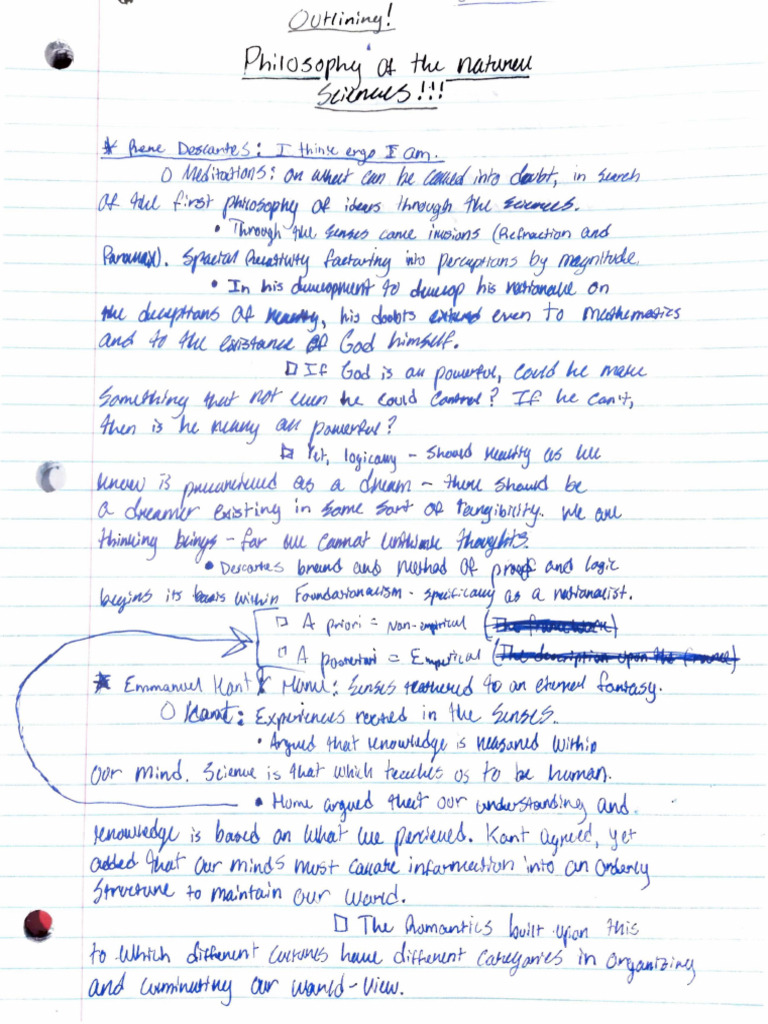 Outlining!
Philosophy of the natural
Sciences!!!
* Rene Descartes: I think ergo I am.
○ Meditations: on what can be called into doubt, in search
of the first philosophy of ideas through the sciences.
• Through the senses came illusions (Refraction and
Parallax). Special Relativity factoring into perceptions by magnitude.
• In his development to develop his rationale on
the deceptions of reality, his doubts extend even to mathematics
and to the existence of God himself.
□ If God is all powerful, could he make
something that not even he could control? If he can't,
then is he really all powerful?
□ Yet, logically - should reality as we
know is preconceived as a dream - there should be
a dreamer existing in some sort of tangibility. We are
thinking beings - for we cannot unthink thoughts.
• Descartes brand and method of proof and logic
begins its basis within Foundationalism - specifically as a rationalist.
□ A priori = Non-empirical (The framework)
□ A posteriori = Empirical (The description upon the)
* Emmanuel Kant & Hume: Senses tethered to an eternal fantasy.
○ Kant: Experiences rooted in the senses.
• Argued that knowledge is reasoned within
our mind. Science is that which teaches us to be human.
• Hume argued that our understanding and
knowledge is based on what we percieved. Kant agreed, yet
added that our minds must collate information into an orderly
structure to maintain our world.
□ The Romantics built upon this
to which different cultures have different categories in organizing
and culminating our world-view.